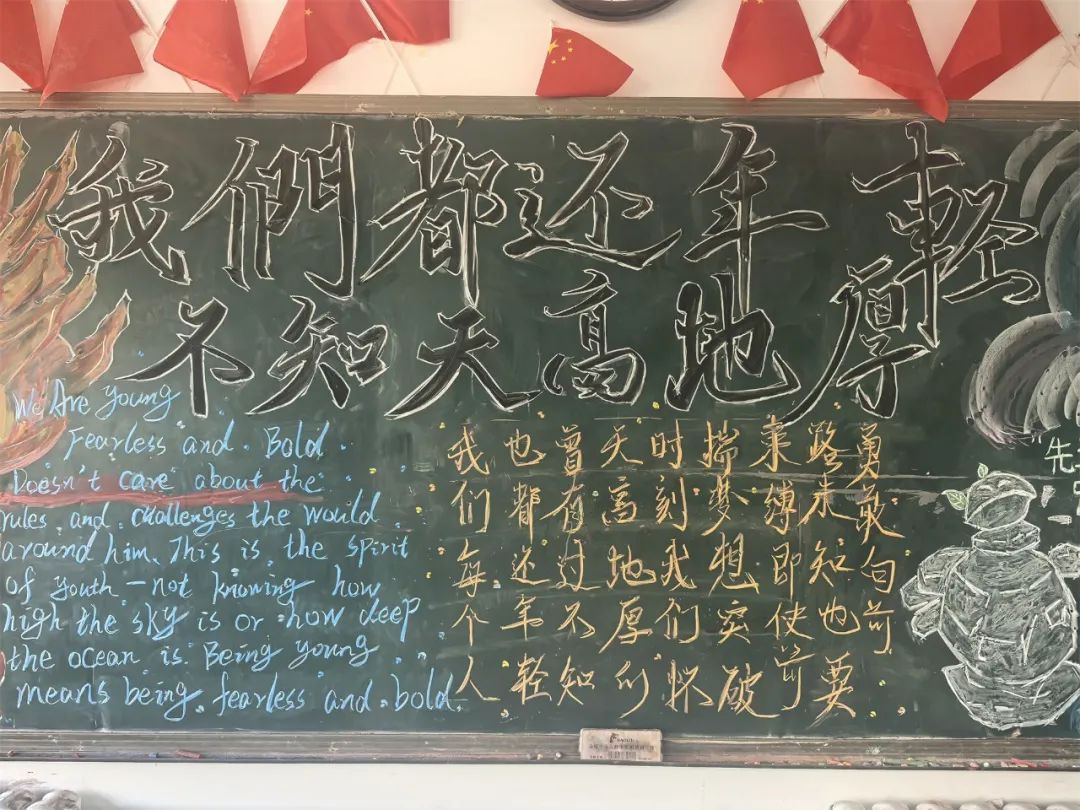 我們都还年輕
不知天高地厚
We Are young
Fearless and Bold.
Doesn't care about the
rules and challenges the would
around him. This is the spirit
of youth - not knowing how
high the sky is or how deep
the ocean is. Being young
means being fearless and bold.
我们每个人
也都还年轻
曾有过不知
天高地厚的
时刻我们怀
揣梦想突破
束缚即使前
路未知也要
勇敢向前
先